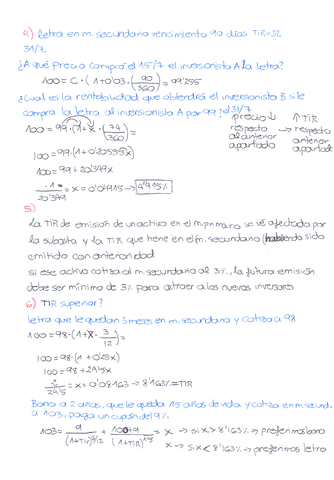 4) letra en m. secundario rendimiento 90 días TIR=3%
31/7.
¿A qué precio compró el 15/7 el inversionista A la letra?
100 = C · (1+0'03 · (90/360)) = 99'255
¿Cual es la rentabilidad que obtendrá el inversionista B si le
compra la letra al inversionista A por 99? el 31/7
100 = 99 · (1+x · (74/360)) =
precio ↓ respecto al anterior apartado → ↑ TIR respecto anterior apartado
100 = 99 · (1+0'20555x)
100 = 99 + 20'349x
1/20'349 = x = 0'04915 → 4'915%
5)
La TIR de emisión de un activo en el m. primario se ve afectado por
la subasta y la TIR que tiene en el m. secundario (habiendo sido
emitido con anterioridad
si ese activo cotiza al m. secundario al 3%, la futura emisión
debe ser mínimo de 3% para atraer a los nuevos inversores
6) TIR superior?
letra que le quedan 3 meses en m. secundario y cotiza a 98
100 = 98 · (1+x · 3/12) =
100 = 98 · (1+0'25x)
100 = 98 + 24'5x
2/24'5 = x = 0'08163 → 8'163% = TIR
Bono a 2 años, que le queda 1'5 años de vida y cotiza en m. secun.
a 103, paga un cupón del 9%
103 = 9/(1+TIR)^1/2 + 100+9/(1+TIR)^1'5 = x → si x > 8'163% → preferimos bono
x → si x < 8'163% → preferimos letra